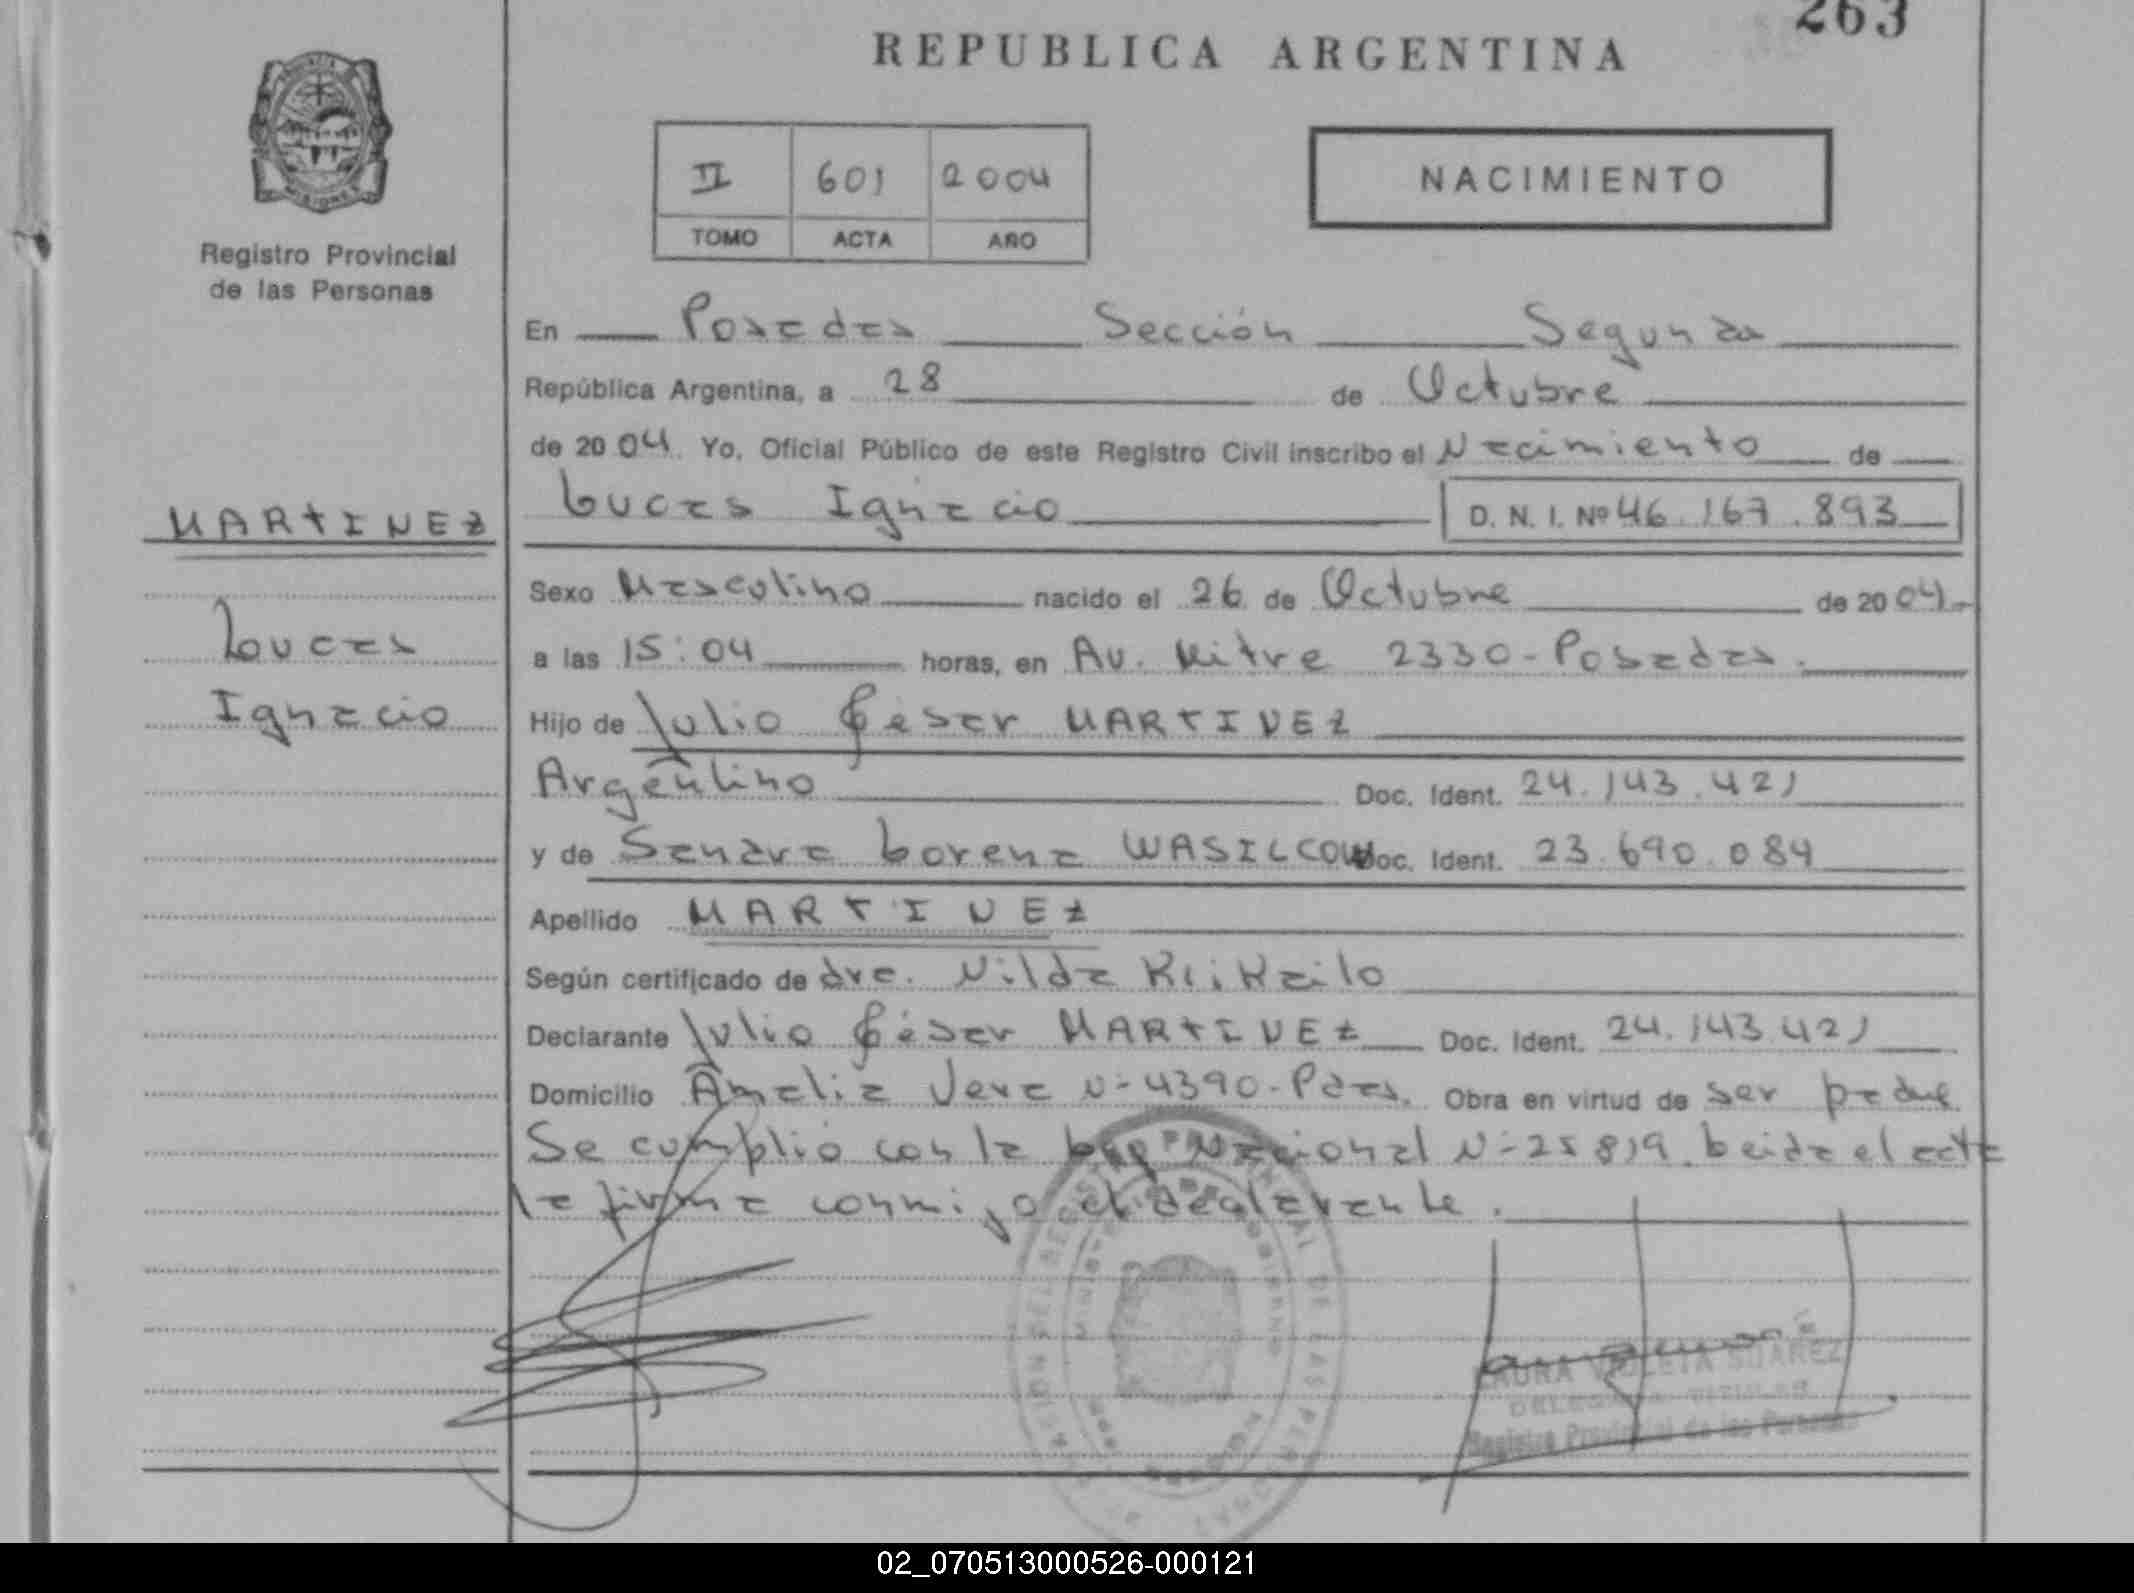 263
REPUBLICA ARGENTINA
PROVINCIA
MISIONES
Registro Provincial
de las Personas
II 601 2004
TOMO ACTA AÑO
NACIMIENTO
En Posadas Sección Segunda
República Argentina, a 28 de Octubre
de 20 04. Yo, Oficial Público de este Registro Civil inscribo el Nacimiento de
Lucas Ignacio D. N. I. Nº 46.167.893
MARTINEZ
Sexo Masculino nacido el 26 de Octubre de 20 04.-
Lucas
a las 15:04 horas, en Av. Mitre 2330-Posadas.
Ignacio
Hijo de Julio César MARTINEZ
Argentino Doc. Ident. 24.143.421
y de Sandra Lorena WASILCOW Doc. Ident. 23.690.084
Apellido MARTINEZ
Según certificado de dra. Nilda
Declarante Julio César MARTINEZ Doc. Ident. 24.143.421
Domicilio Amalia Vera N- 4390-Pdas. Obra en virtud de ser padre
Se cumplió con la Ley Nacional N- 25819. Leida el acta
la firma conmigo el declarante.
LAURA VIOLETA SUAREZ
DELEGADA TITULAR
Registro Provincial de las Personas
02_070513000526-000121